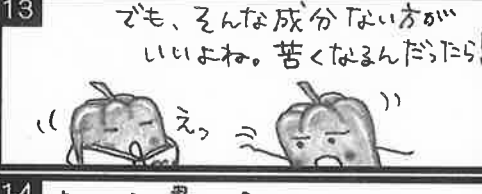 13
でも、そんな成分ない方が
いいよね。苦くなるんだったら!
えっ
14